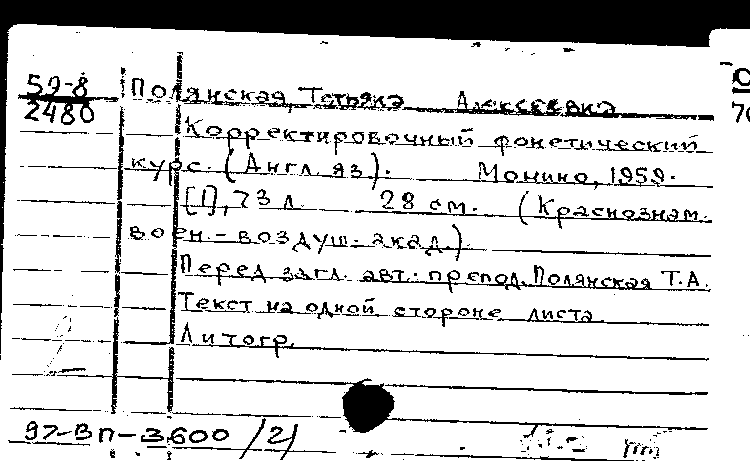 59-8
2480
Полянская, Татьяна Алексеевна
Корректировочный фонетический
курс. (Англ. яз). Монино, 1959.
[1], 73 л. 28 см. (Краснознам.
воен.-воздуш. акад.)
Перед загл. авт.: препод. Полянская Т.А.
Текст на одной стороне листа
Литогр.
97-Вп-3600 /2/